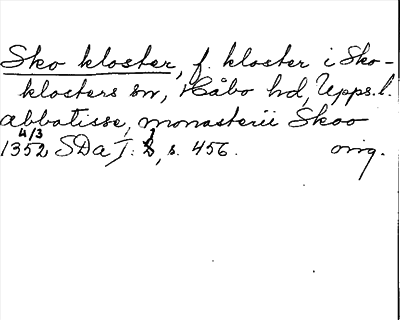 Sko kloster, f. kloster i Sko-
klosters sn, Håbo hd, Upps.l.
abbatisse, monasterii Skoo
4/3
1352 SDa I: , s. 456. orig.